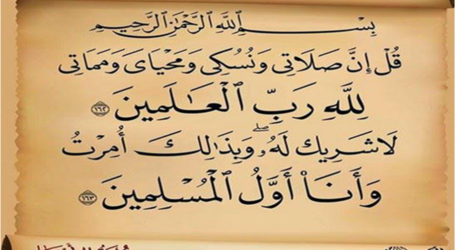 بِسْمِ اللَّهِ الرَّحْمَٰنِ الرَّحِيمِ
قُلْ إِنَّ صَلَاتِي وَنُسُكِي وَمَحْيَايَ وَمَمَاتِي
لِلَّهِ رَبِّ الْعَالَمِينَ ١٦٢
لَا شَرِيكَ لَهُۥ ۖ وَبِذَٰلِكَ أُمِرْتُ
وَأَنَا۠ أَوَّلُ الْمُسْلِمِينَ ١٦٣